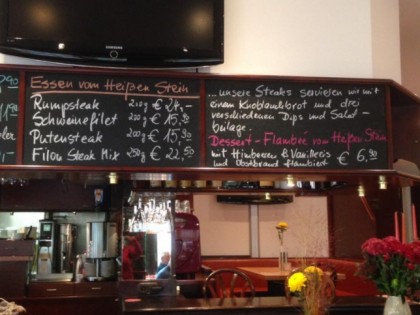 SAMSUNG
Essen vom Heißen Stein
Rumpsteak 210g € 24,-
Schweinefilet 200g € 15,90
Putensteak 200g € 15,90
Filou Steak Mix 250g € 22,50
...unsere Steaks servieren wir mit
einem Knoblauchbrot und drei
verschiedenen Dips und Salat-
beilage.
Dessert-Flambée vom Heißen Stein
mit Himbeeren & Vanilleeis
und Obstbrand flambiert € 6,90